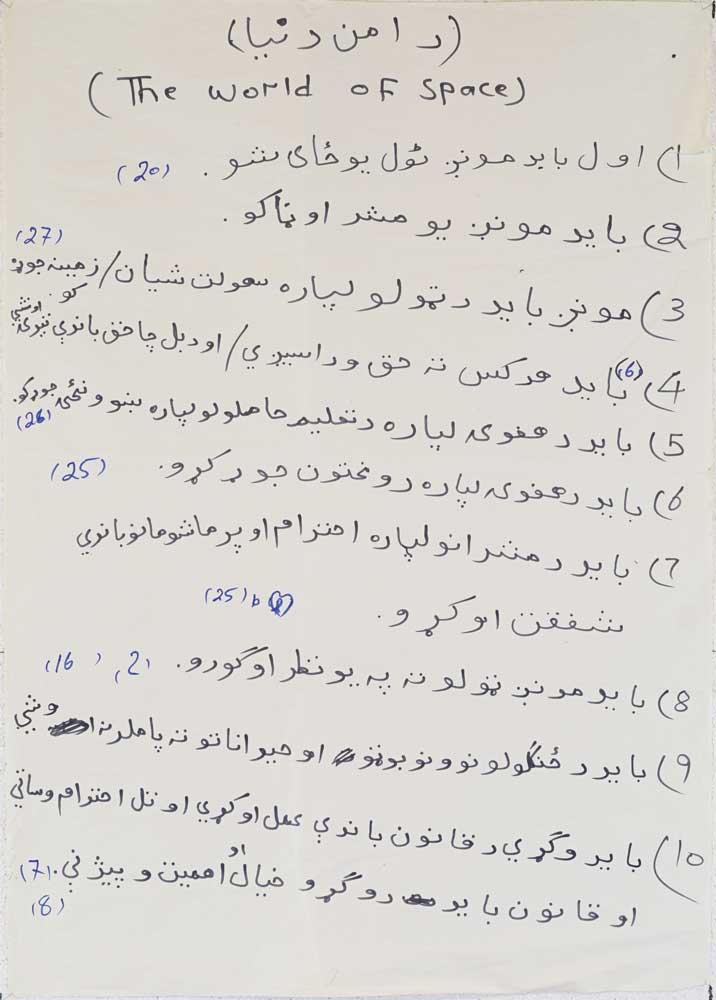 (د امن دنیا)
(The world of space)
1) اول باید مونږ ټول یوځای شو. (20)
2) باید مونږ یو مشر اوټاکو.
(27)
3) مونږ باید دټولو لپاره سهولت شیان/زمینه جوړه کو.
4) باید هرکس ته حق ورداسیږي/اودبل چا حق باندې تیری اونشي (6)
5) باید دهغوی لپاره دتعلیم حاصلولو لپاره ښوونځی جوړکو. (26)
6) باید دهغوی لپاره روغتون جوړ کړو. (25)
7) باید دمشرانو لپاره احترام او پر ماشومانو باندې
شفقت اوکړو. (25) b
8) باید مونږ ټولو ته په یو نظر اوګورو. (2, (16
9) باید دځنګلونو ونو بوټو او حیواناتو ته پاملرنه وشي
10) باید وګړي دقانون باندې عمل اوکړي او تل احترام وساتي
او قانون باید دوګړو خیال او اهمیت وپیژني. (7)
(8)